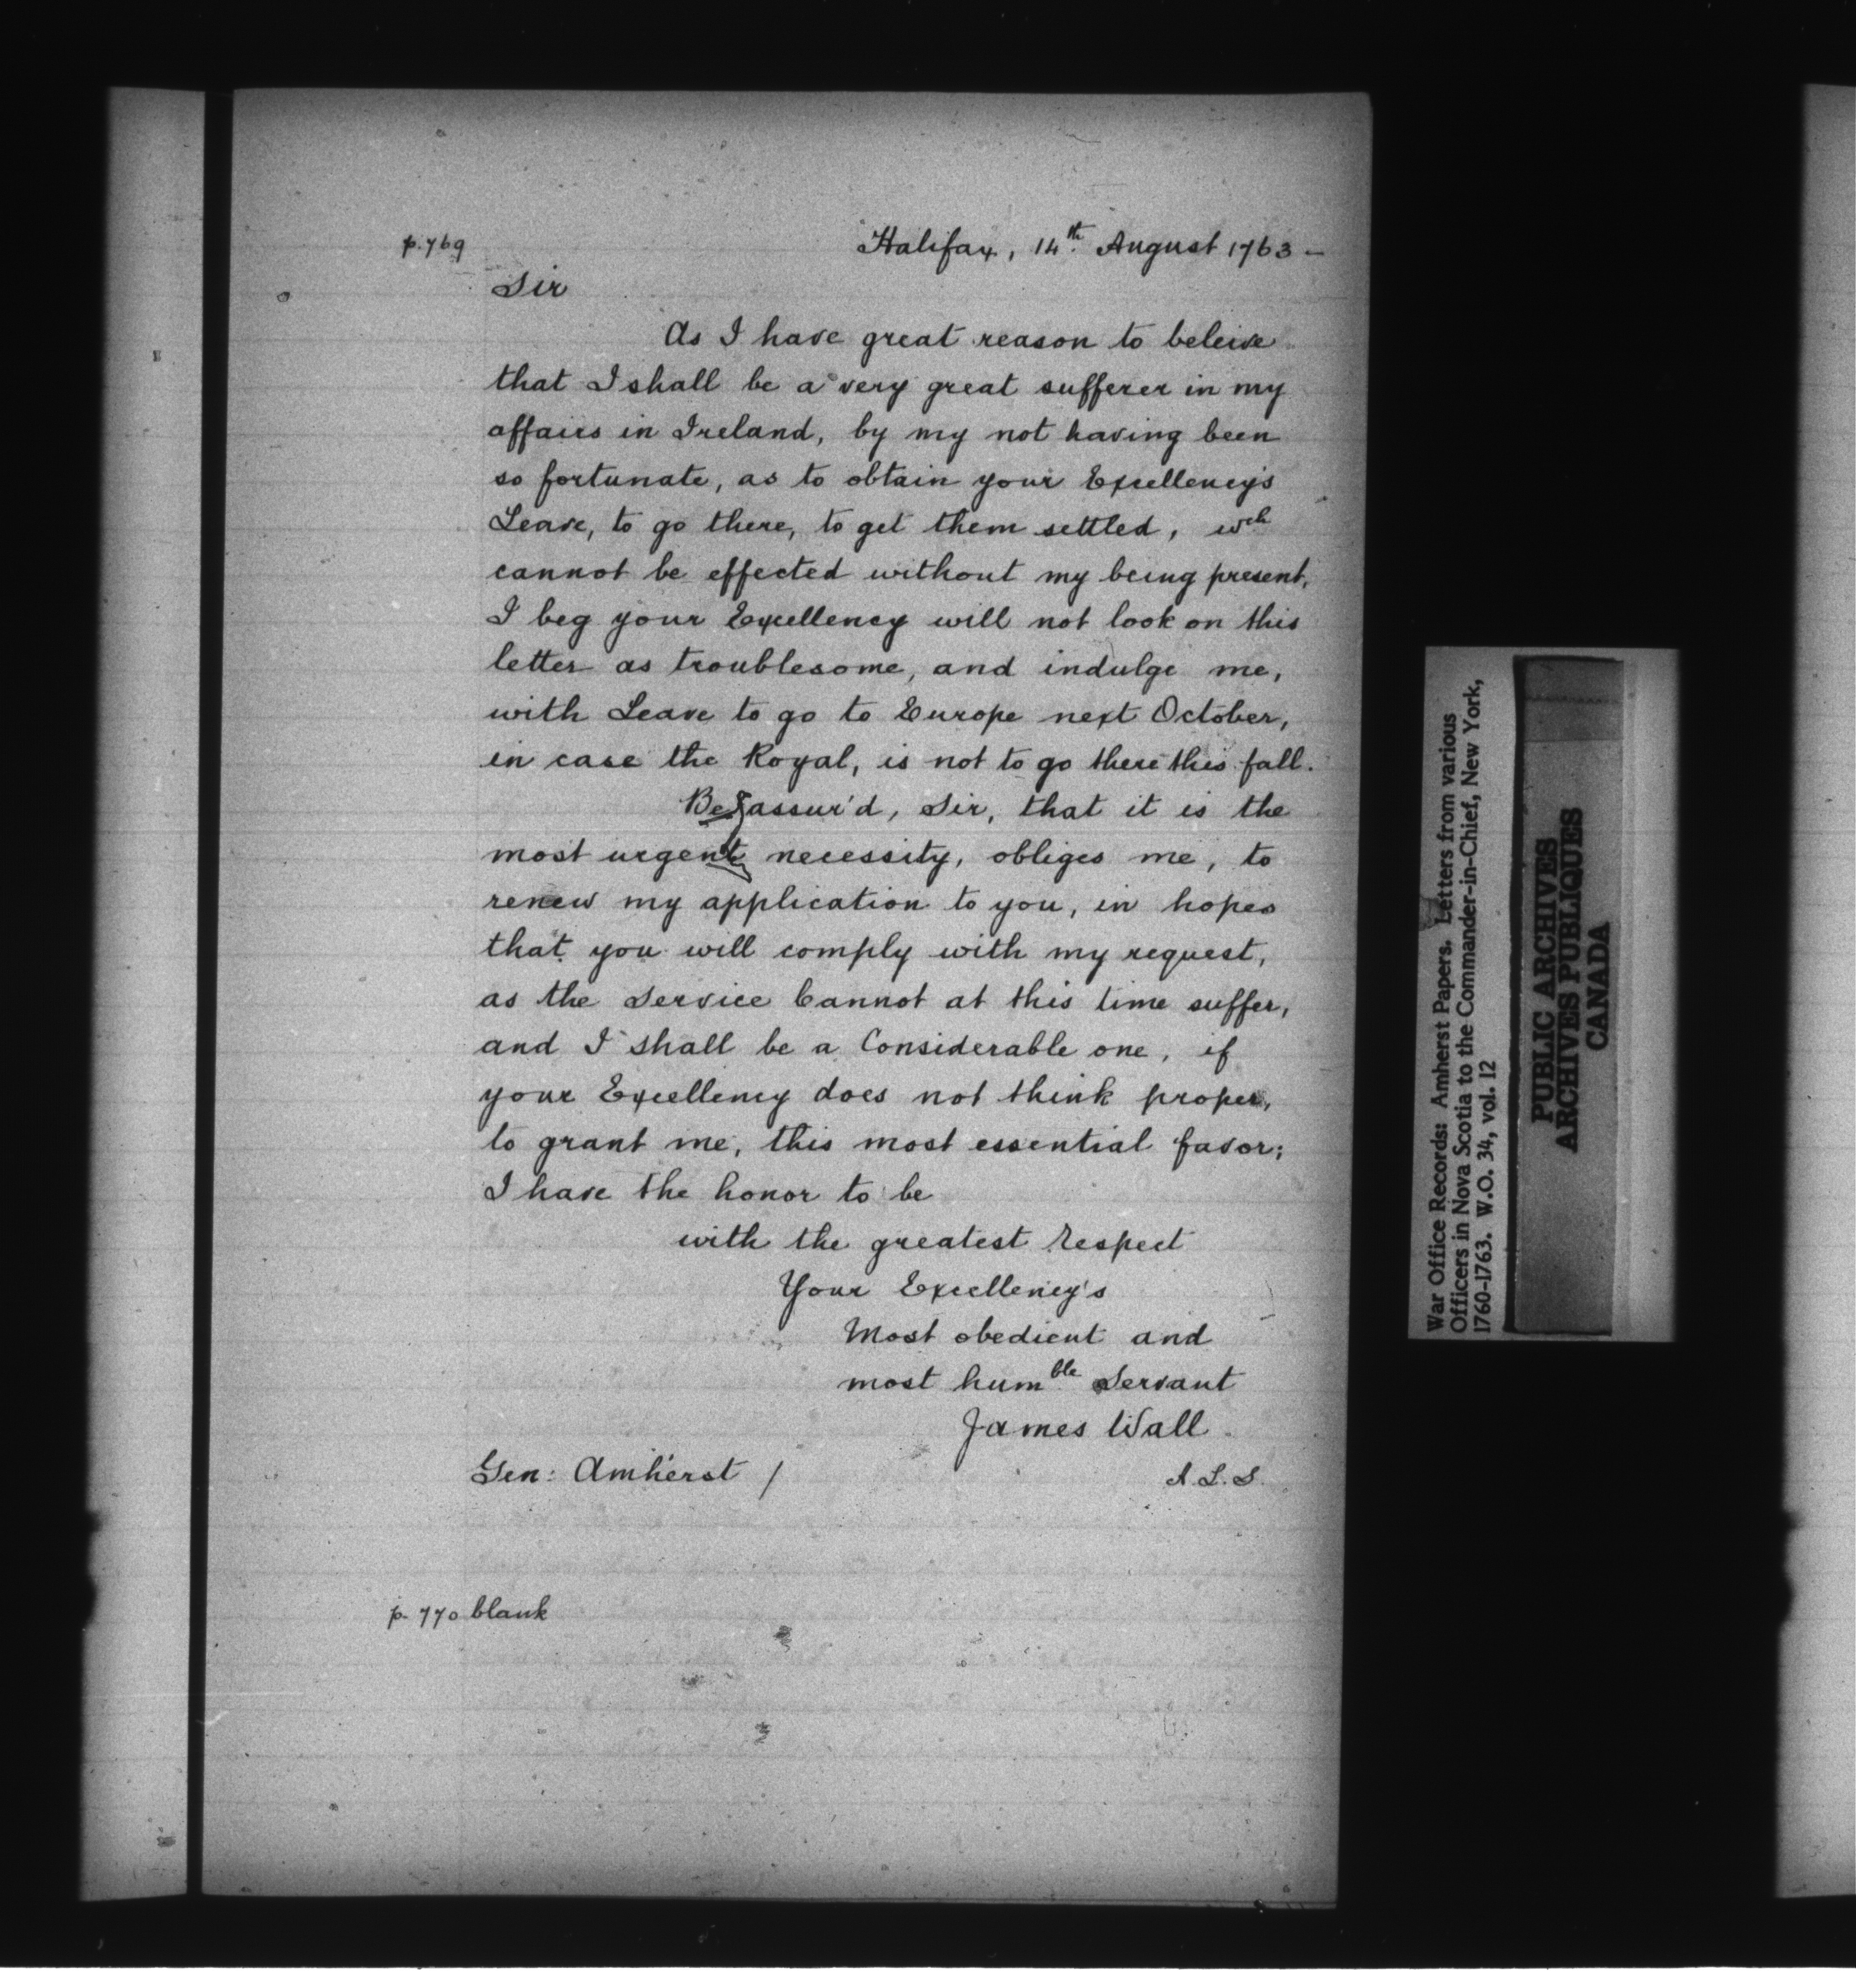 p. 769
Halifax, 14th August 1763 -
Sir
As I have great reason to beleive
that I shall be a very great sufferer in my
affairs in Ireland, by my not having been
so fortunate, as to obtain your Excellency's
Leave, to go there, to get them settled, wch
cannot be effected without my being present,
I beg your Excellency will not look on this
letter as troublesome, and indulge me,
with Leave to go to Europe next October,
in case the Royal, is not to go there this fall.
Be assur'd, Sir, that it is the
most urgent necessity, obliges me, to
renew my application to you, in hopes
that you will comply with my request,
as the Service Cannot at this time suffer,
and I shall be a Considerable one, if
your Excellency does not think proper,
to grant me, this most essential favor;
I have the honor to be
with the greatest Respect
Your Excellency's
Most obedient and
most humble Servant
James Wall
Gen: Amherst /
A.L.S.
p. 770 blank
War Office Records: Amherst Papers. Letters from various
Officers in Nova Scotia to the Commander-in-Chief, New York,
1760-1763. W.O. 34, vol. 12
PUBLIC ARCHIVES
ARCHIVES PUBLIQUES
CANADA